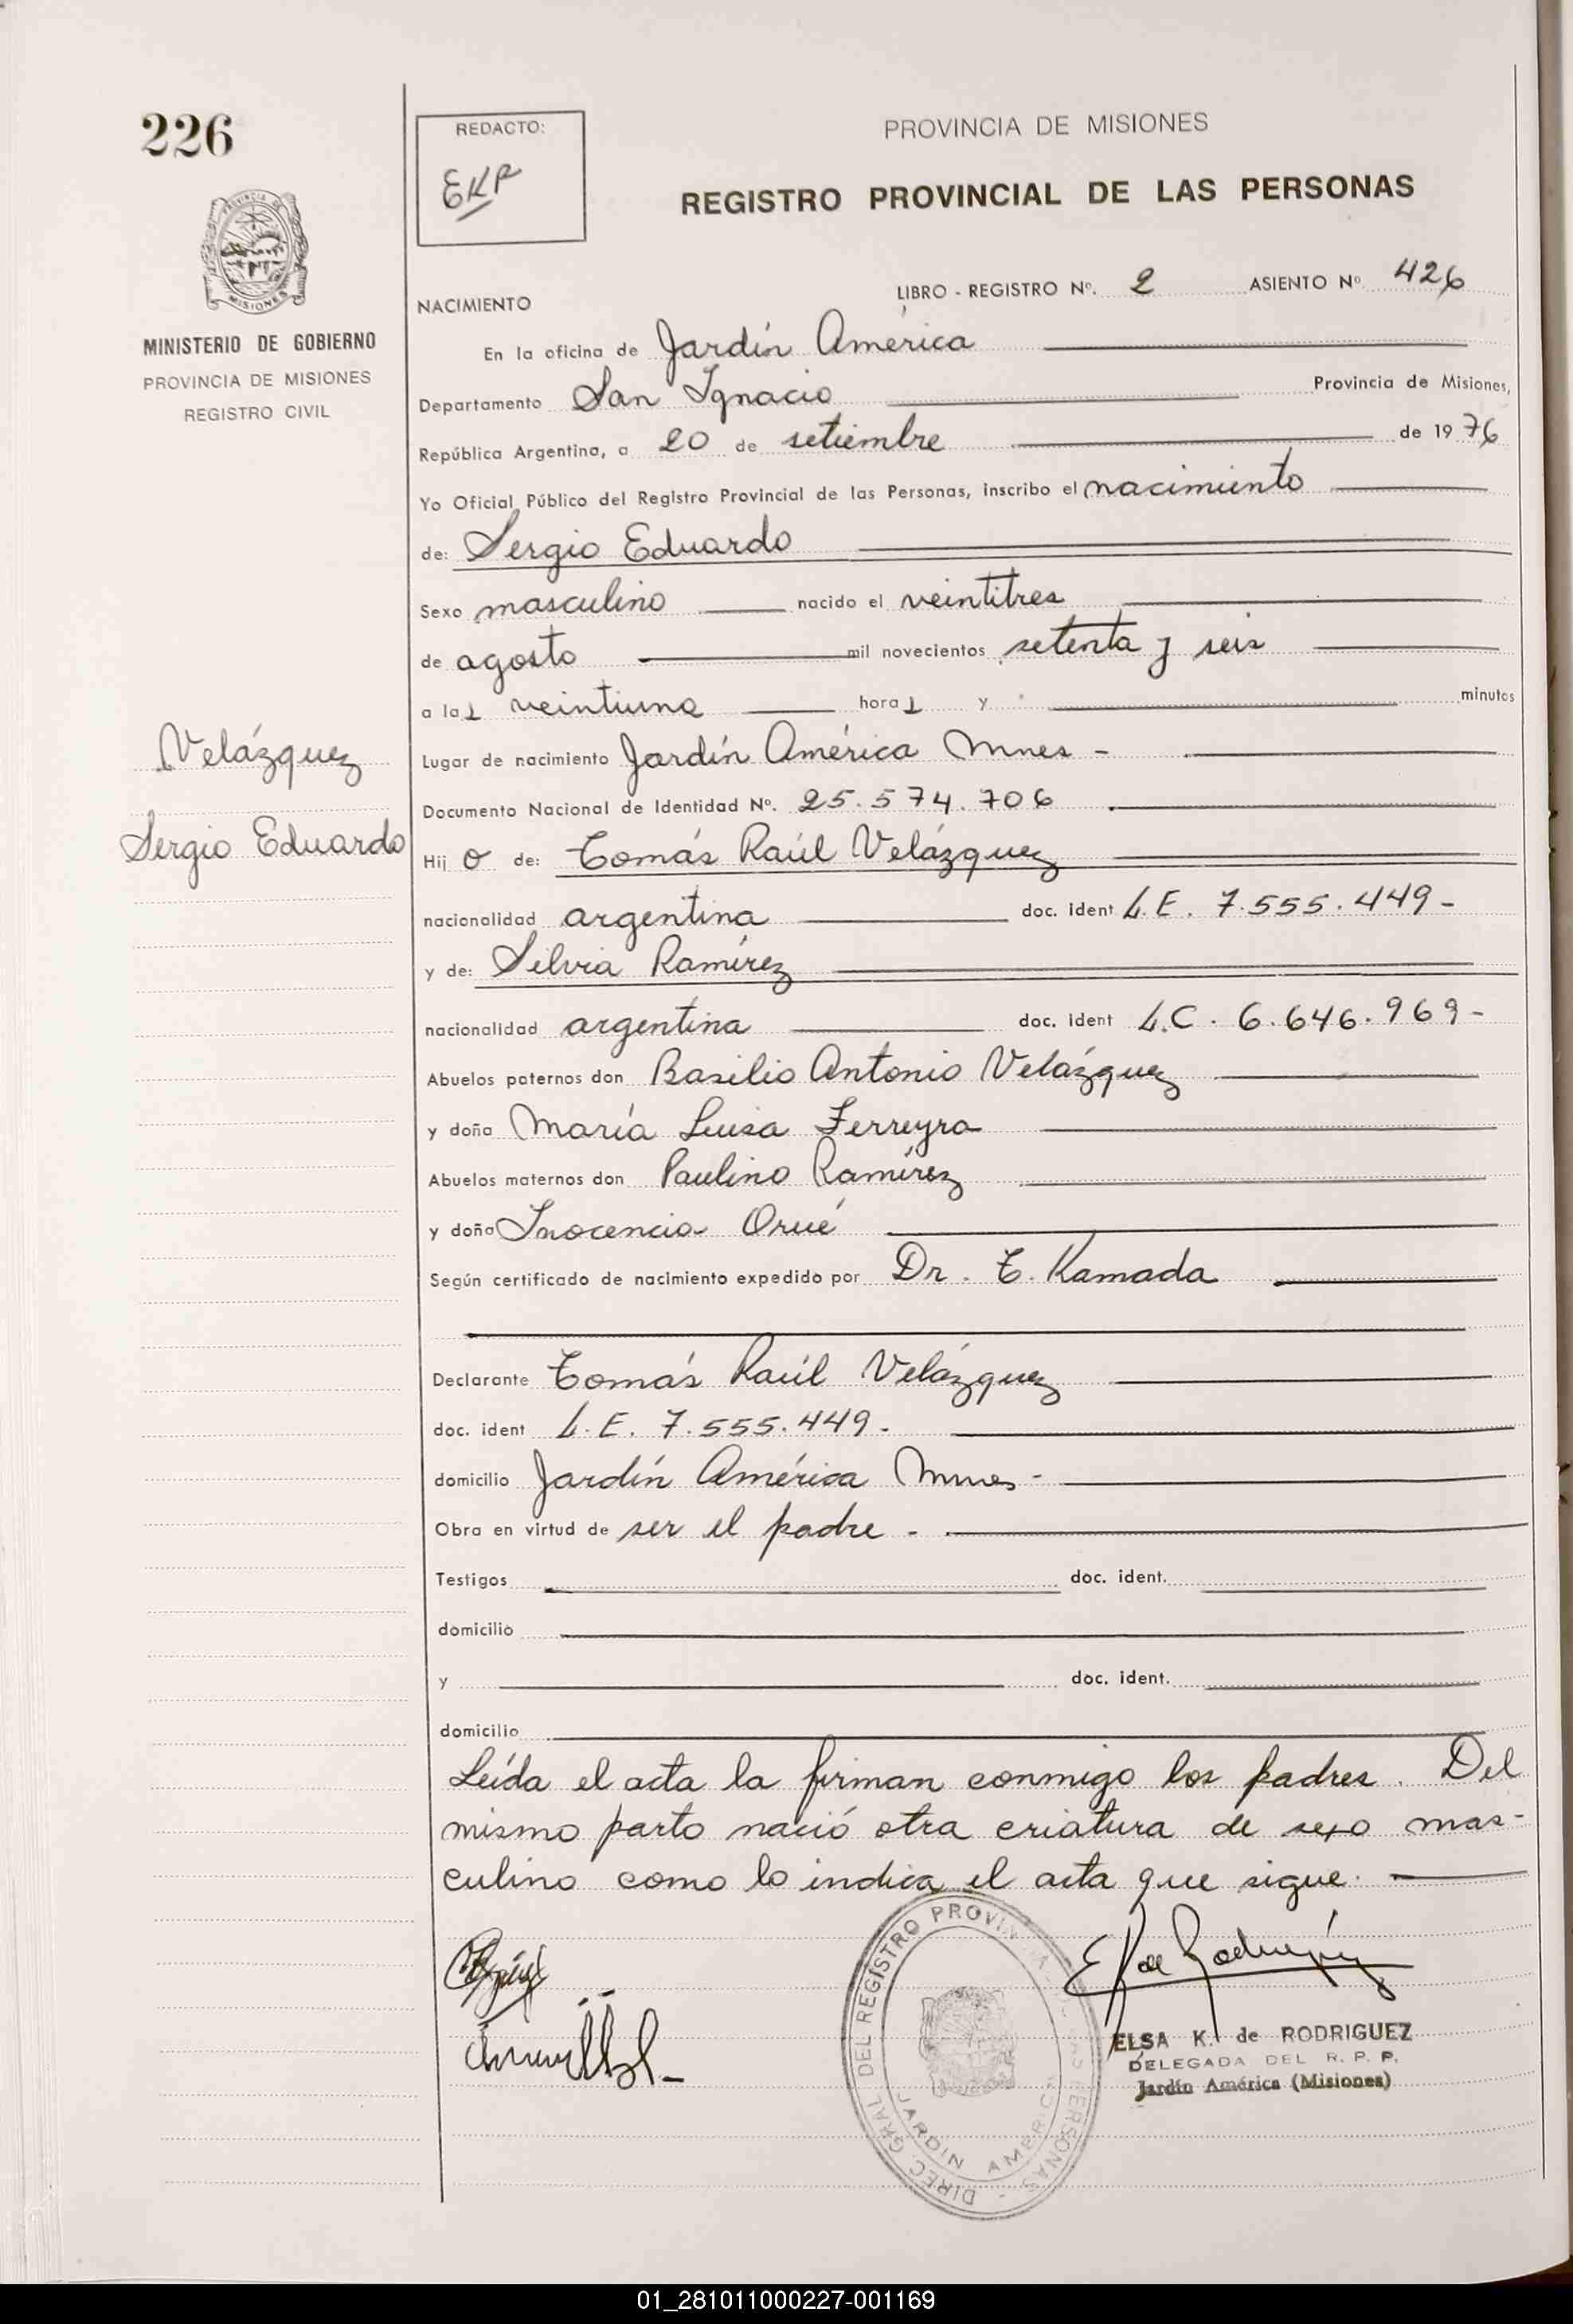 226
REDACTO:
EKR
PROVINCIA DE MISIONES
REGISTRO PROVINCIAL DE LAS PERSONAS
MISIONES
MINISTERIO DE GOBIERNO
PROVINCIA DE MISIONES
REGISTRO CIVIL
LIBRO - REGISTRO Nº. 2 ASIENTO Nº 426
NACIMIENTO
En la oficina de Jardín América
Departamento San Ignacio Provincia de Misiones,
República Argentina, a 20 de setiembre de 1976
Yo Oficial Público del Registro Provincial de las Personas, inscribo el nacimiento
de: Sergio Eduardo
Sexo masculino nacido el veintitres
de agosto mil novecientos setenta y seis
a las veintiuna horas y minutos
Velázquez
Sergio Eduardo
Lugar de nacimiento Jardín América Mnes -
Documento Nacional de Identidad Nº. 25.574.706
Hijo de: Tomás Raúl Velázquez
nacionalidad argentina doc. ident L.E. 7.555.449-
y de: Silvia Ramírez
nacionalidad argentina doc. ident L.C. 6.646.969-
Abuelos paternos don Basilio Antonio Velázquez
y doña María Luisa Ferreyra
Abuelos maternos don Paulino Ramírez
y doña Inocencia Orué
Según certificado de nacimiento expedido por Dr. T. Kamada
Declarante Tomás Raúl Velázquez
doc. ident L.E. 7.555.449.
domicilio Jardín América Mnes -
Obra en virtud de ser el padre -
Testigos doc. ident.
domicilio
y doc. ident.
domicilio
Leída el acta la firman conmigo los padres. Del
mismo parto nació otra criatura de sexo mas-
culino como lo indica el acta que sigue.
DIREC. GRAL DEL REGISTRO PROVINCIAL DE LAS PERSONAS
JARDIN AMERICA
E K de Rodriguez
ELSA K. de RODRIGUEZ
DELEGADA DEL R. P. P.
Jardín América (Misiones)
01_281011000227-001169